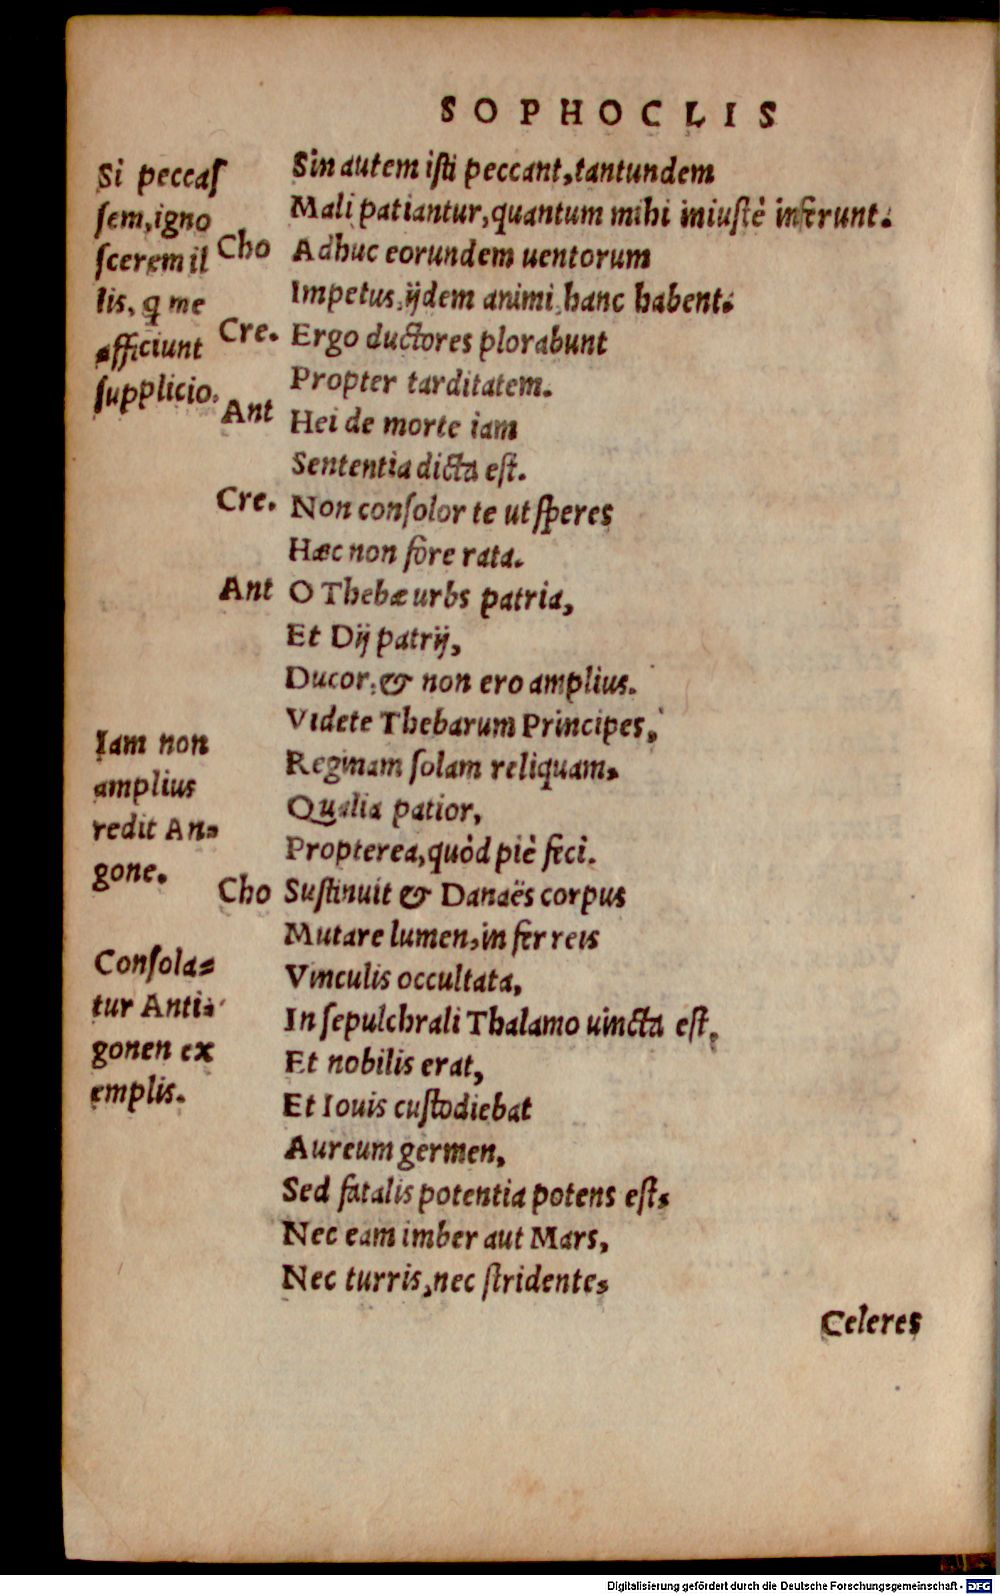 SOPHOCLIS
Si peccaſ
ſem, igno
ſcerem il
lis, q me
afficiunt
ſupplicio.
Sin autem iſti peccant, tantundem
Mali patiantur, quantum mihi iniuſtè inferunt.
Cho Adhuc eorundem uentorum
Impetus, ijdem animi, hanc habent.
Cre. Ergo ductores plorabunt
Propter tarditatem.
Ant Hei de morte iam
Sententia dicta eſt.
Cre. Non conſolor te ut ſperes
Hæc non fore rata.
Ant O Thebæ urbs patria,
Et Dij patrij,
Ducor, & non ero amplius.
Videte Thebarum Principes,
Reginam ſolam reliquam,
Qualia patior,
Propterea, quòd piè feci.
Iam non
amplius
redit An-
gone.
Cho Suſtinuit & Danaës corpus
Mutare lumen, in ferreis
Vinculis occultata,
In ſepulchrali Thalamo uincta eſt,
Et nobilis erat,
Et Iouis cuſtodiebat
Aureum germen,
Sed fatalis potentia potens eſt,
Nec eam imber aut Mars,
Nec turris, nec ſtridente,
Conſola-
tur Anti-
gonen ex
emplis.
Celeres
Digitalisierung gefördert durch die Deutsche Forschungsgemeinschaft - DFG